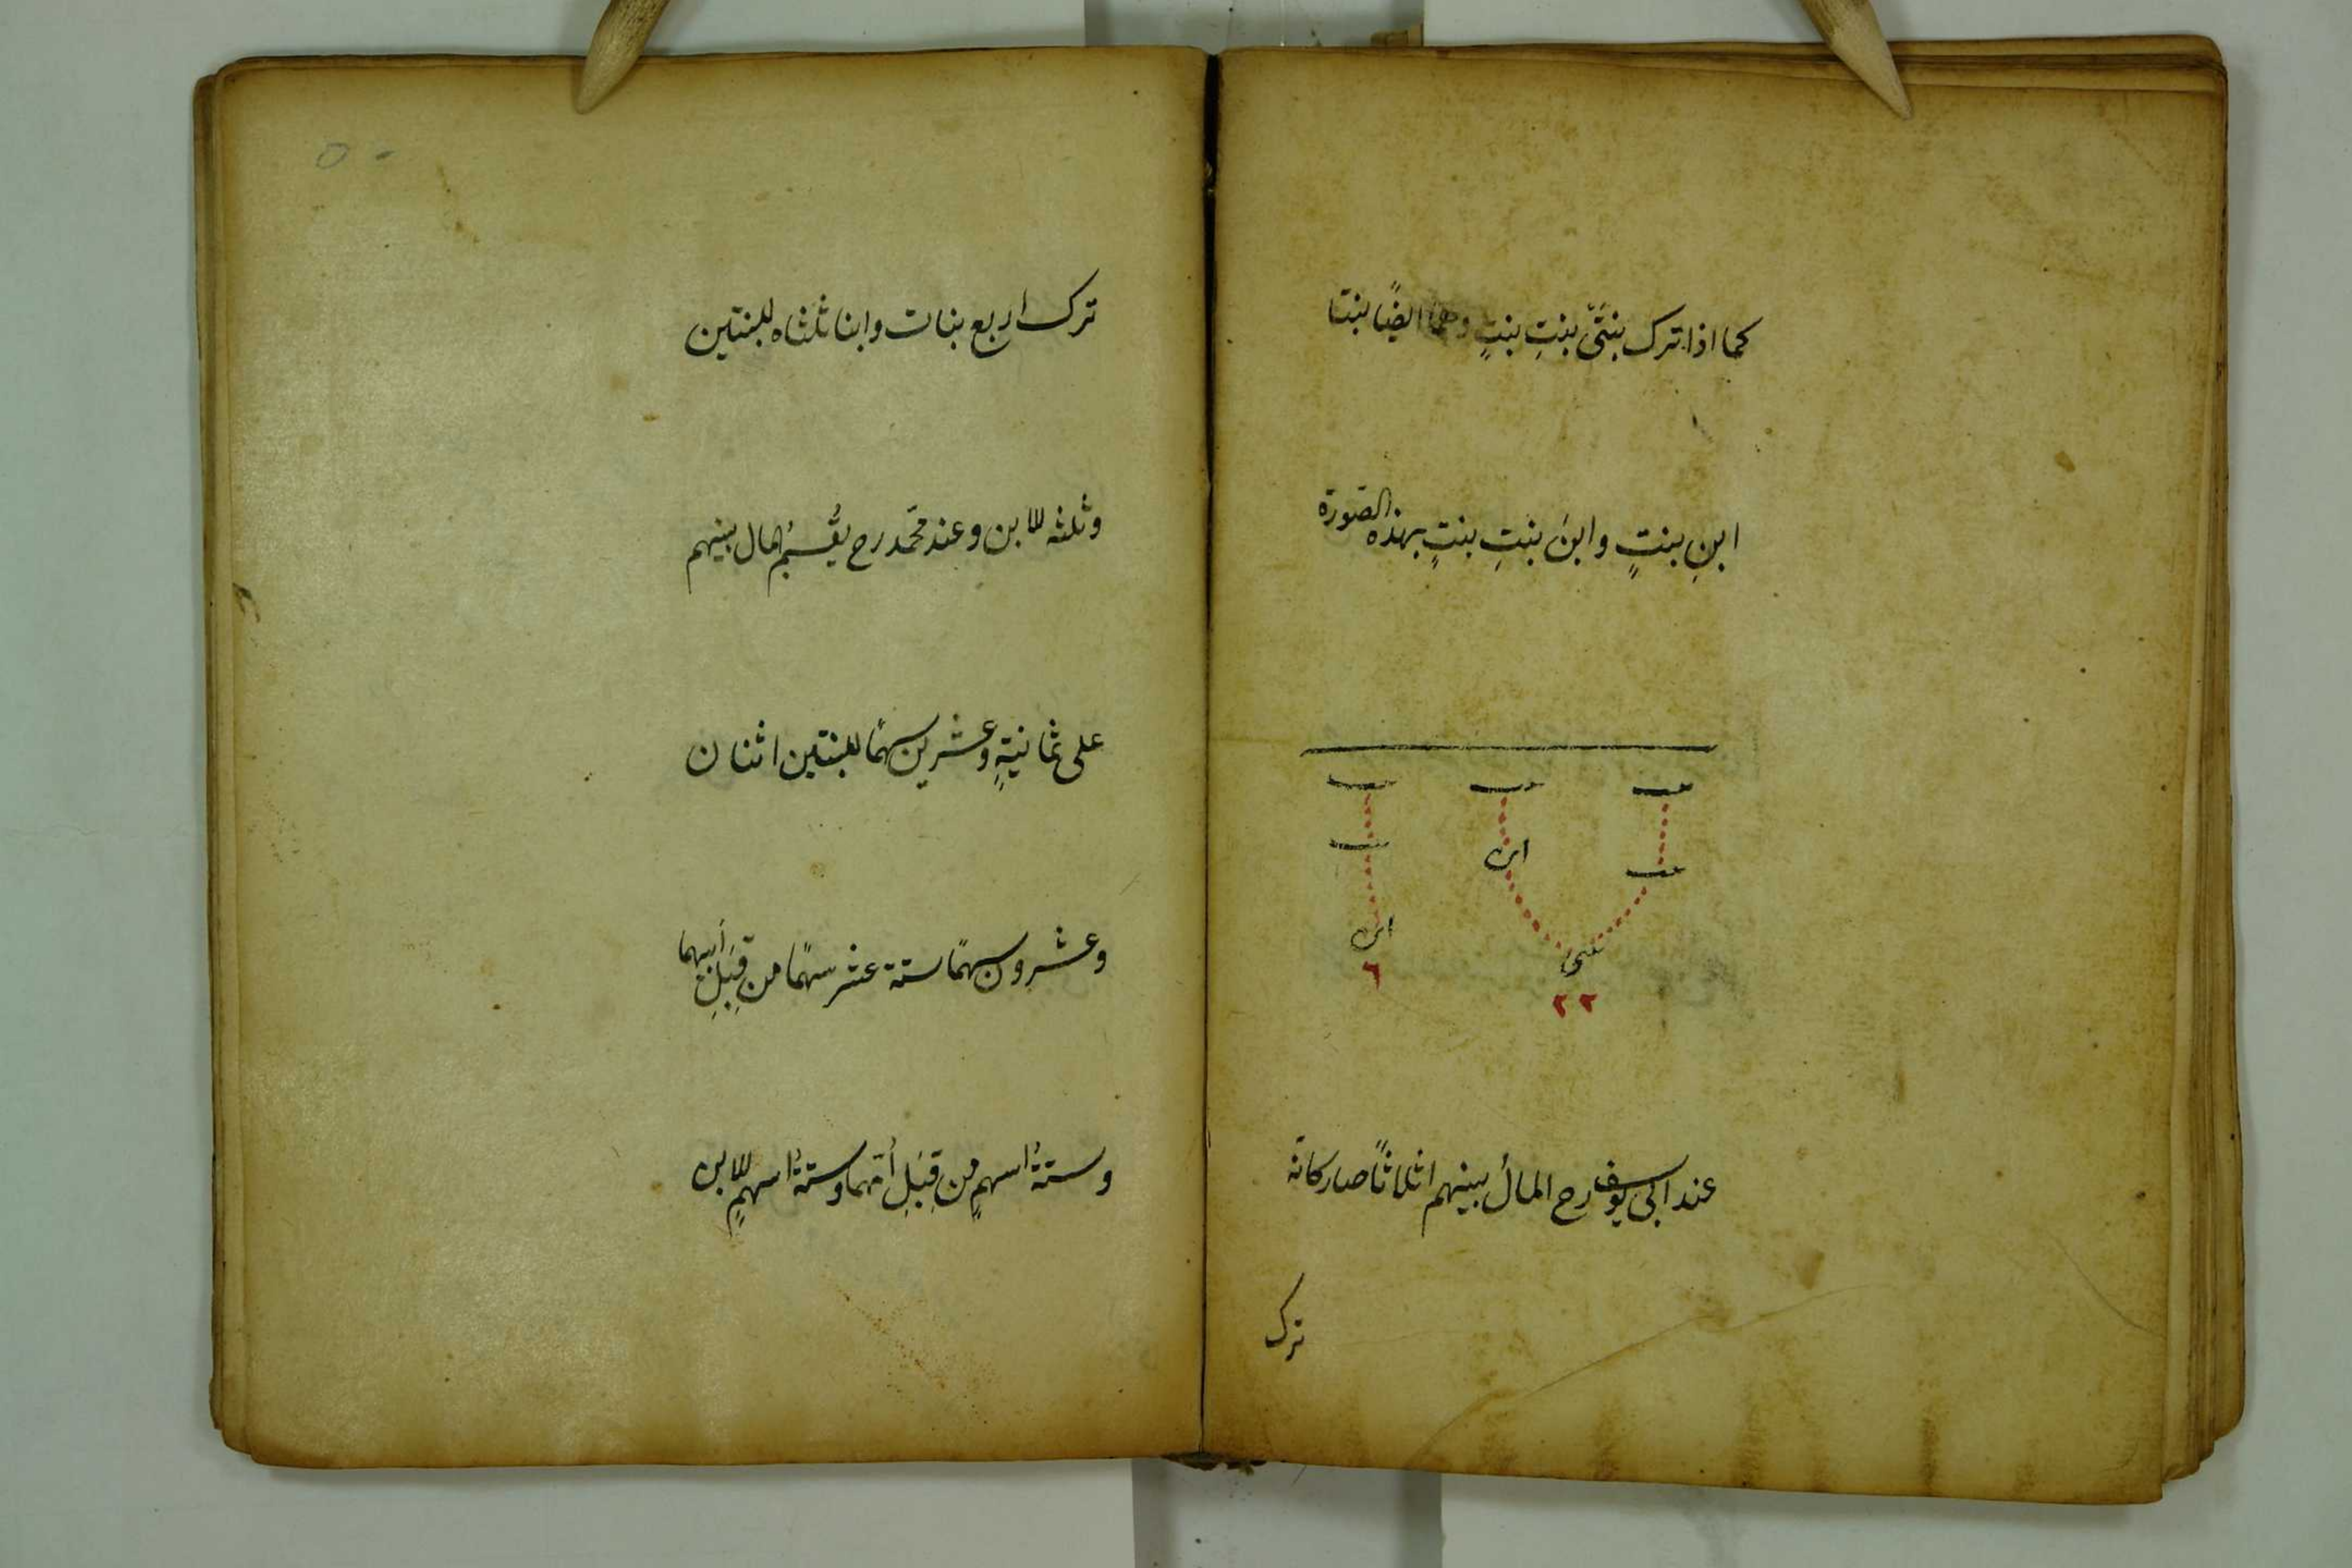 كما اذا ترك بنتَىْ بنتِ بنتٍ وهما ايضًا بنتا
ابنِ بنتٍ وابنَ بنتِ بنتٍ بهذه الصّورة
بنت بنت بنت
بنت ابن بنت
بنتى ابن
٢٢ ٦
عند ابى يوسف رح المالُ بينهم اثلاثًا صار كانه
ترك
٥٠
ترك اربع بنات وابنا ثلثاه للبنتين
وثلثه للابن وعند محمّد رح يُقسَمُ المال بينهم
على ثمانيةٍ وعشرين سهمًا للبنتين اثنان
وعشرون سهمًا ستة عشر سهمًا من قِبَلِ أبيهما
وستةُ اسهمٍ من قِبَلِ أمّهما وستةُ اسهمٍ للابن